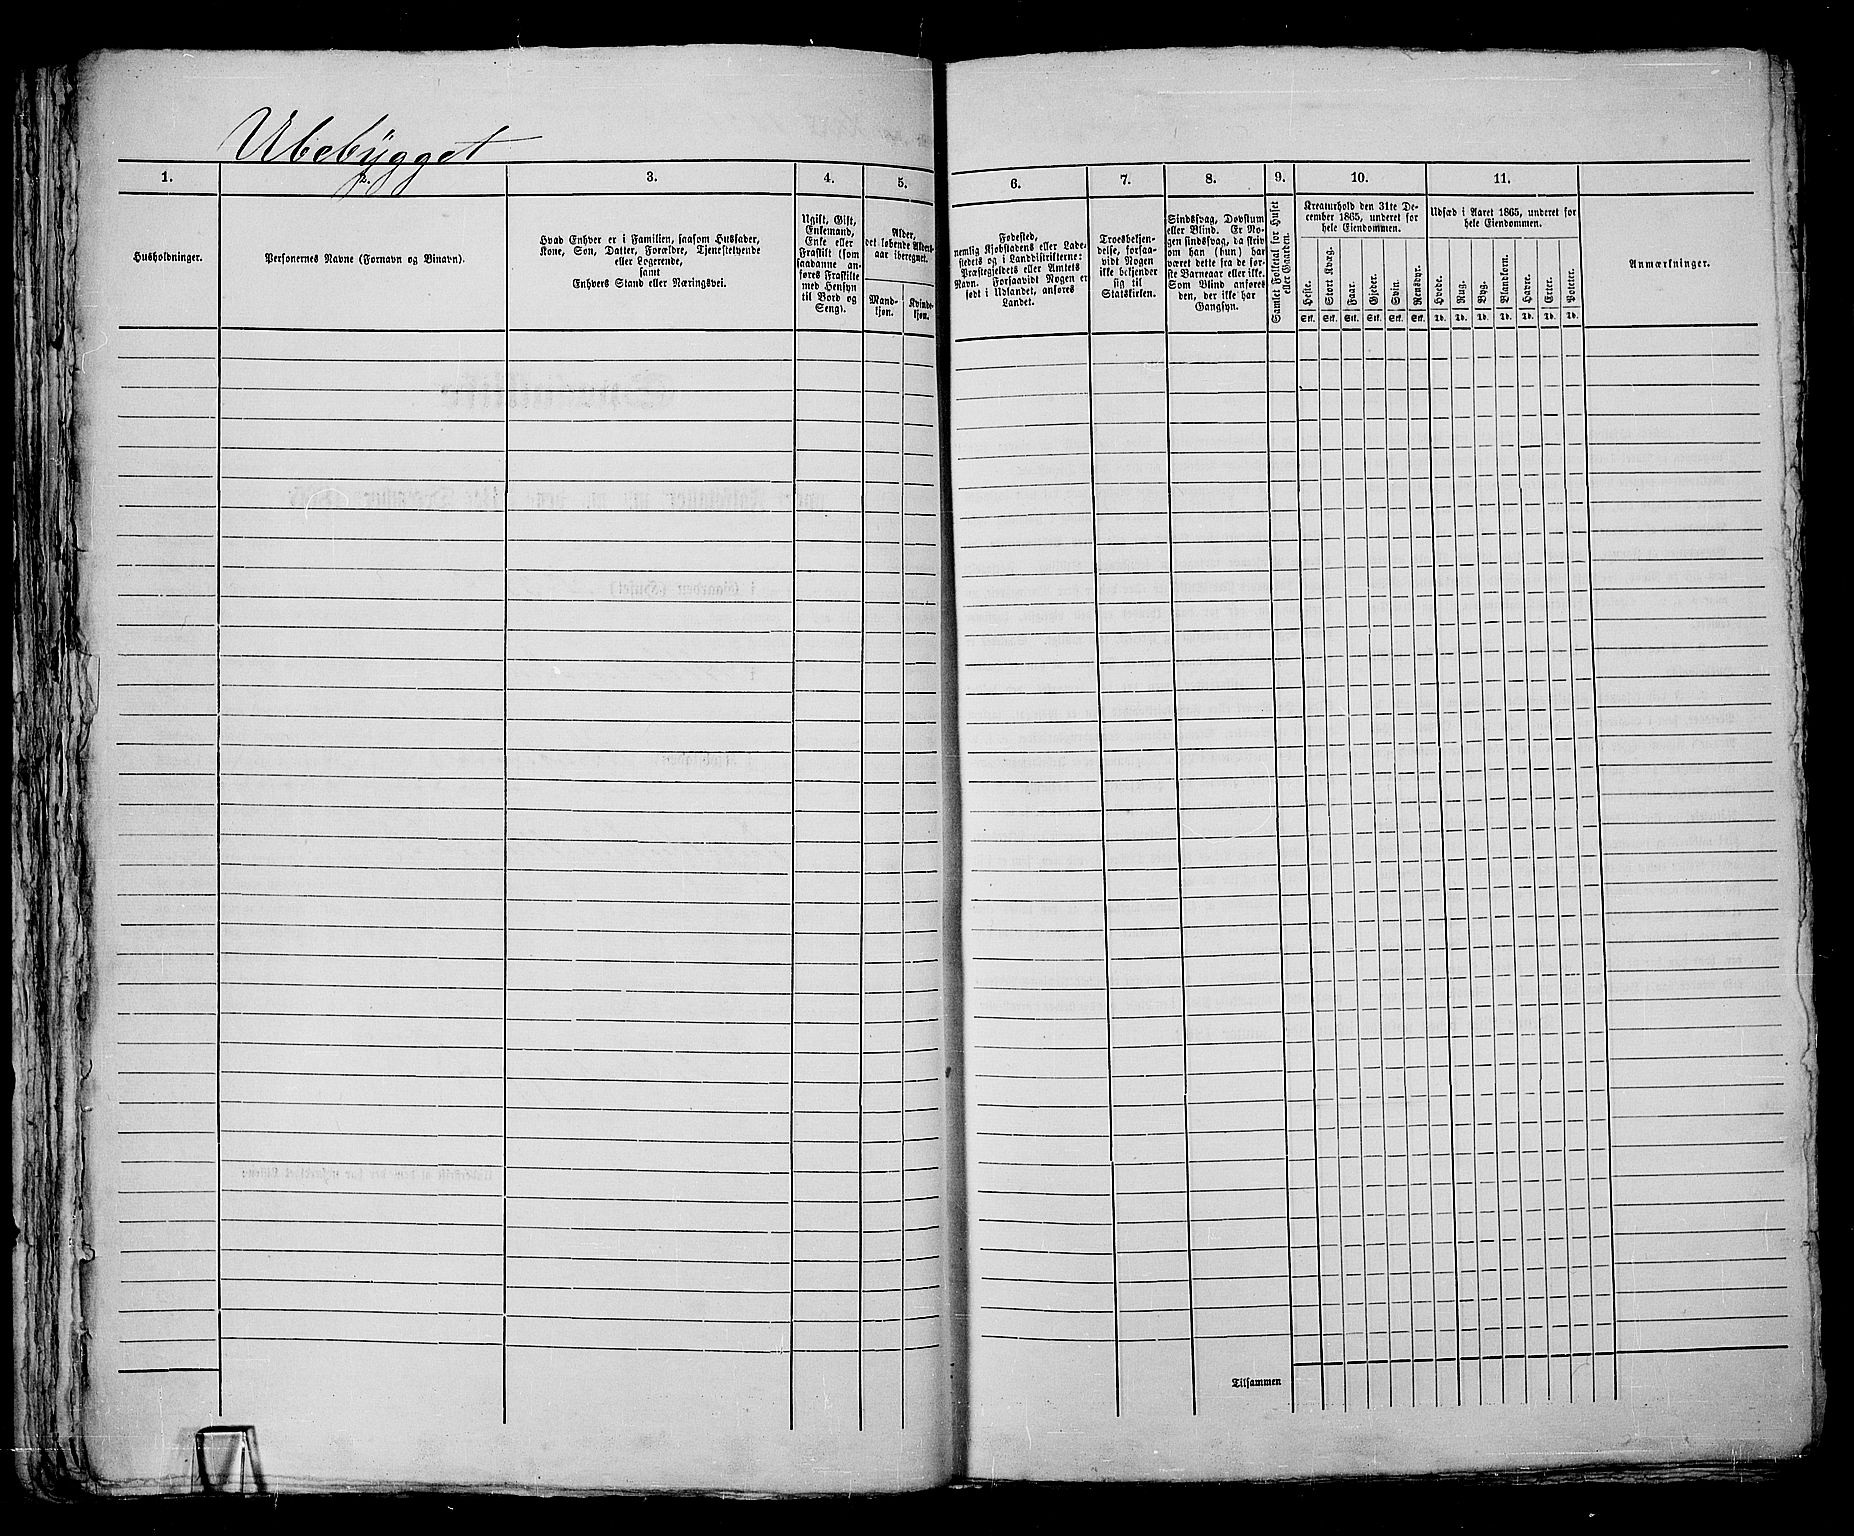 Ubebygget
1.
2.
3.
4.
5.
6.
7.
8.
9.
10.
11.
Husholdninger.
Personernes Navne (Fornavn og Binavn).
Hvad Enhver er i Familien, saasom Husfader,
Kone, Søn, Datter, Forældre, Tjenestetyende
eller Logerende,
samt
Enhvers Stand eller Næringsvei.
Ugift, Gift,
Enkemand,
Enke eller
Fraskilt (som
saadanne an-
føres Fraskilte
med Hensyn
til Bord og
Seng).
Alder,
det løbende Alders-
aar iberegnet.
Mand-
kjøn.
Kvinde-
kjøn.
Fødested,
nemlig Kjøbstadens eller Lade-
stedets og i Landdistrikterne:
Præstegjeldets eller Amtets
Navn. Forsaavidt Nogen er
født i Udlandet, anføres
Landet.
Troesbekjen-
delse, forsaa-
vidt Nogen
ikke bekjender
sig til
Statskirken.
Sindssvag, Døvstum
eller Blind. Er No-
gen sindssvag, da skriv
om han (hun) har
været dette fra de før-
ste Barneaar eller ikke.
Som Blind anføres
den, der ikke har
Gangsyn.
Samlet Folketal for Huset
eller Gaarden.
Kreaturhold den 31te De-
cember 1865, underet for
hele Eiendommen.
Heste.
Stort Kvæg.
Faar.
Gjeder.
Svin.
Rensdyr.
Stk.
Stk.
Stk.
Stk.
Stk.
Stk.
Udsæd i Aaret 1865, underet for
hele Eiendommen.
Hvede.
Rug.
Byg.
Blandkorn.
Havre.
Erter.
Poteter.
Td.
Td.
Td.
Td.
Td.
Td.
Td.
Anmærkninger.
Tilsammen